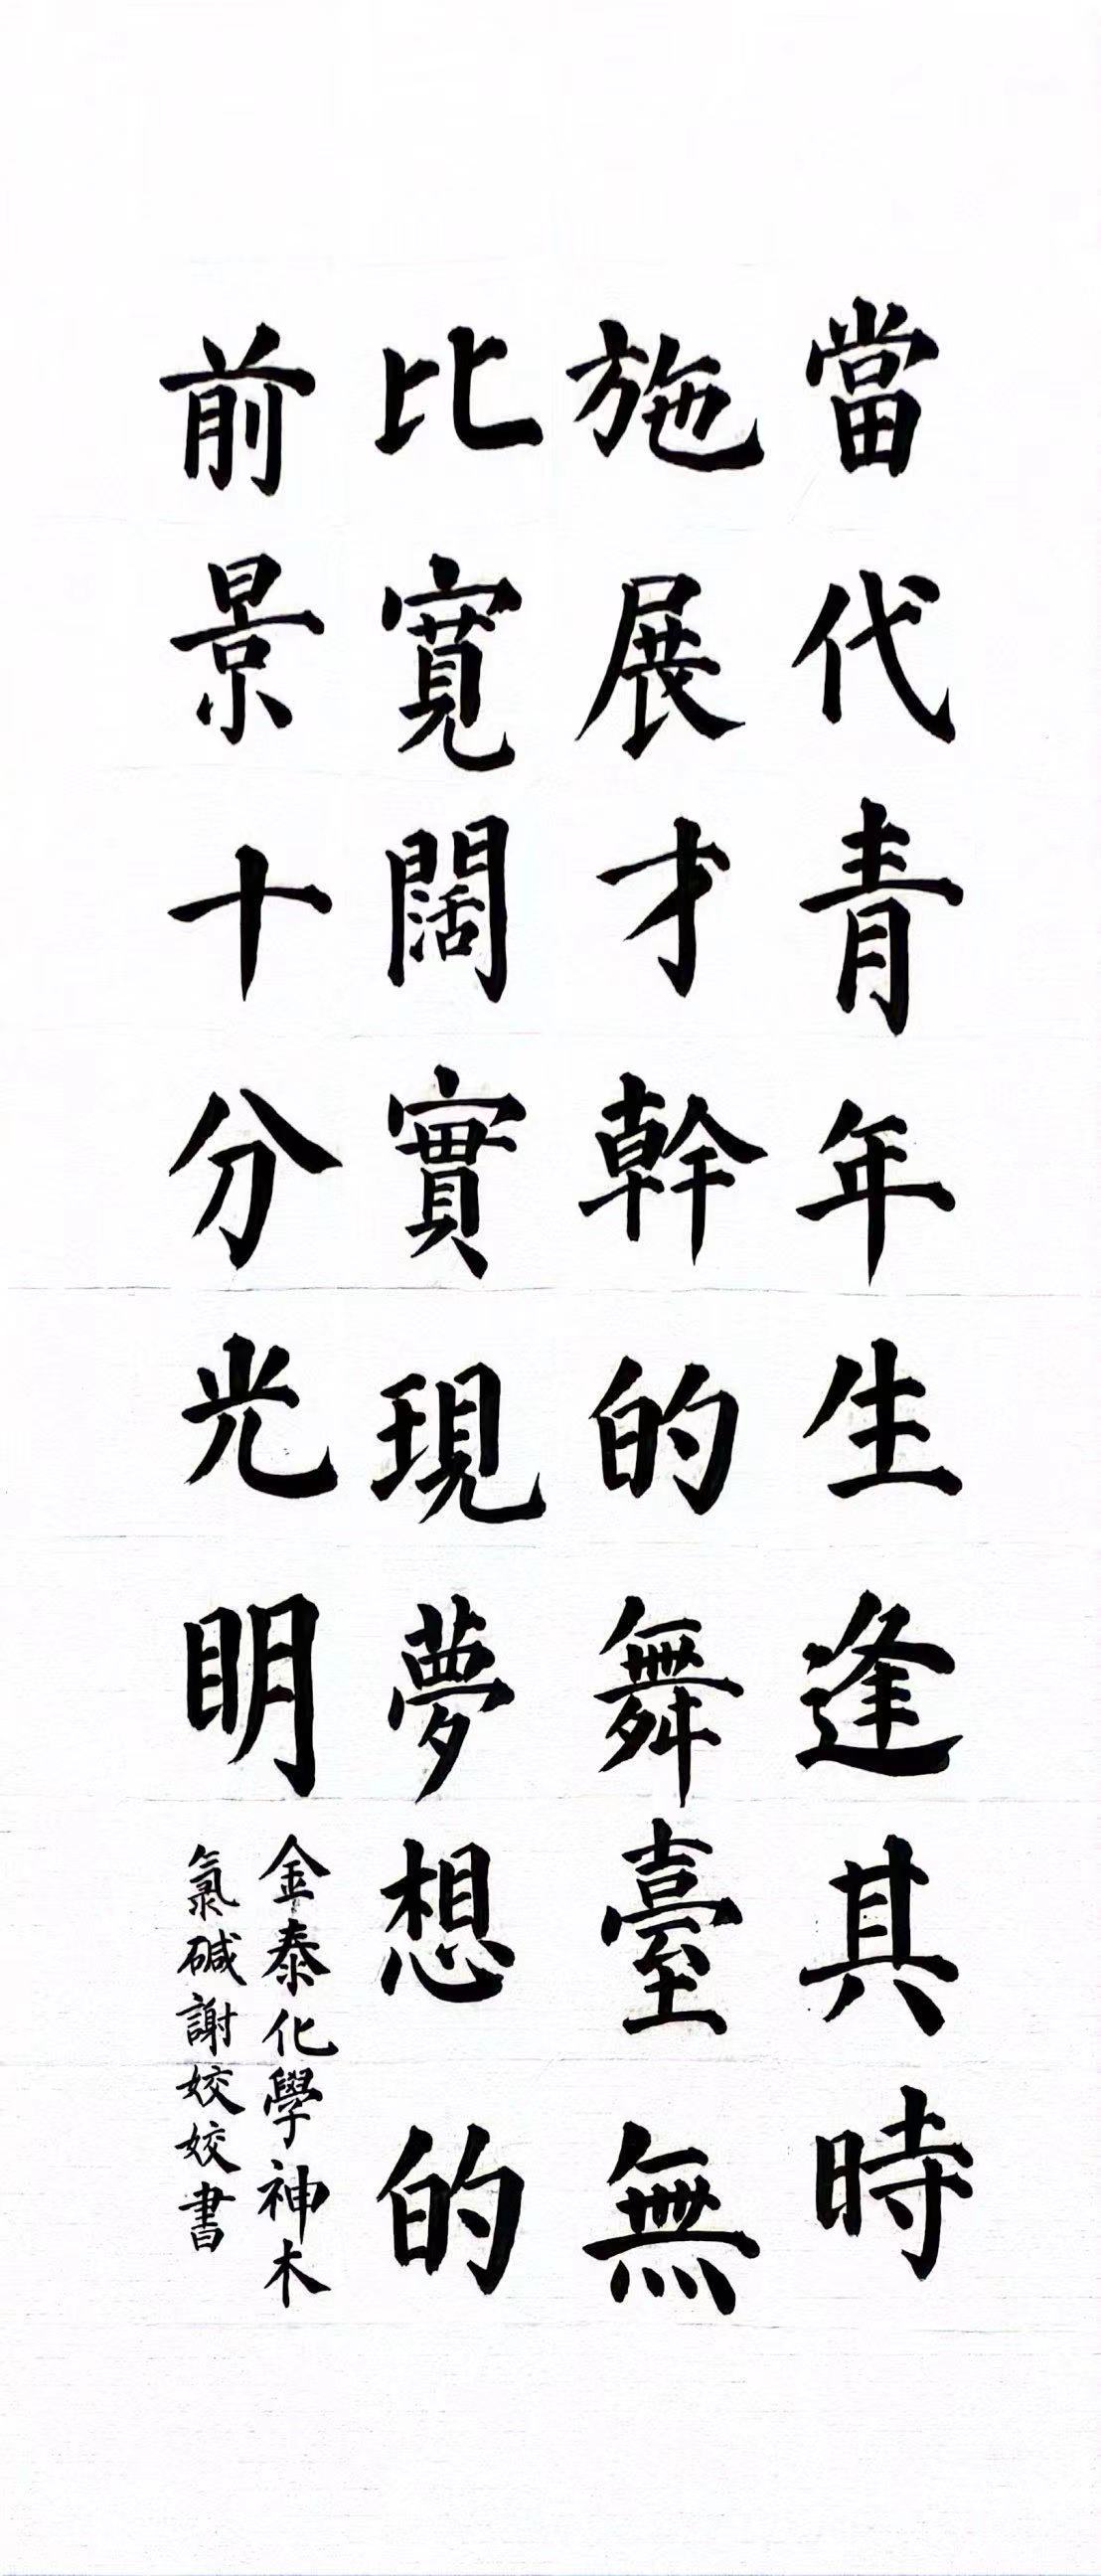 當代青年生逢其時
施展才幹的舞臺無
比寬闊實現夢想的
前景十分光明
金泰化學神木
氯碱謝姣姣書